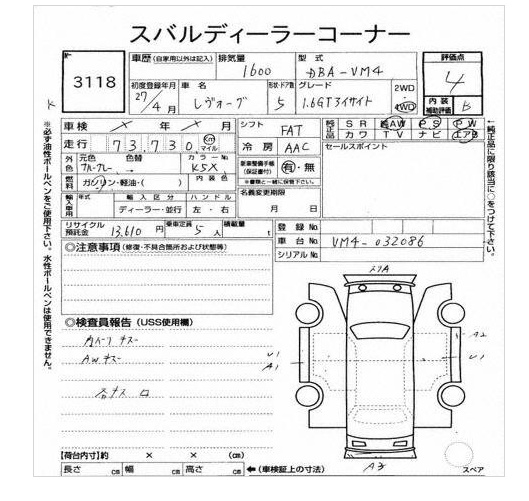 スバルディーラーコーナー
No
3118
車歴 (自家用以外は記入)
排気量
1600
型式
DBA-VM4
評価点
4
初度登録年月
27/4月
車名
レヴォーグ
形状・ドア数
5
グレード
1.6GTアイサイト
2WD
・
4WD
内装
補助評価
B
車検 × 年 × 月
シフト
FAT
純正品
SR AW PS PW
カワ TV ナビ エアB
走行 73,730 km マイル
冷房
AAC
セールスポイント
外色
元色 色替
カラーNo.
K5X
新車整備手帳
(保証書付)
有・無
※書類と一緒に保管下さい。
燃料
ガソリン・軽油・( )
内装色
名義変更期限
月 日
輸入車使用
年式
輸入区分
ディーラー・並行
ハンドル
左・右
リサイクル預託金
13,610 円
乗車定員
5 人
積載量
t
登録No.
車台No. VM4-032086
シリアルNo.
◎注意事項(修復・不具合箇所および状態等)
◎検査員報告(USS使用欄)
AWキズ
スリA
U1
A1
A2
U1
A3
スペア
【荷台内寸】約 × × (cm)
長さ cm 幅 cm 高さ cm
←(車検証上の寸法)
※必ず油性ボールペンをご使用下さい。水性ボールペンは使用できません。
←純正品に限り該当に○をつけて下さい。